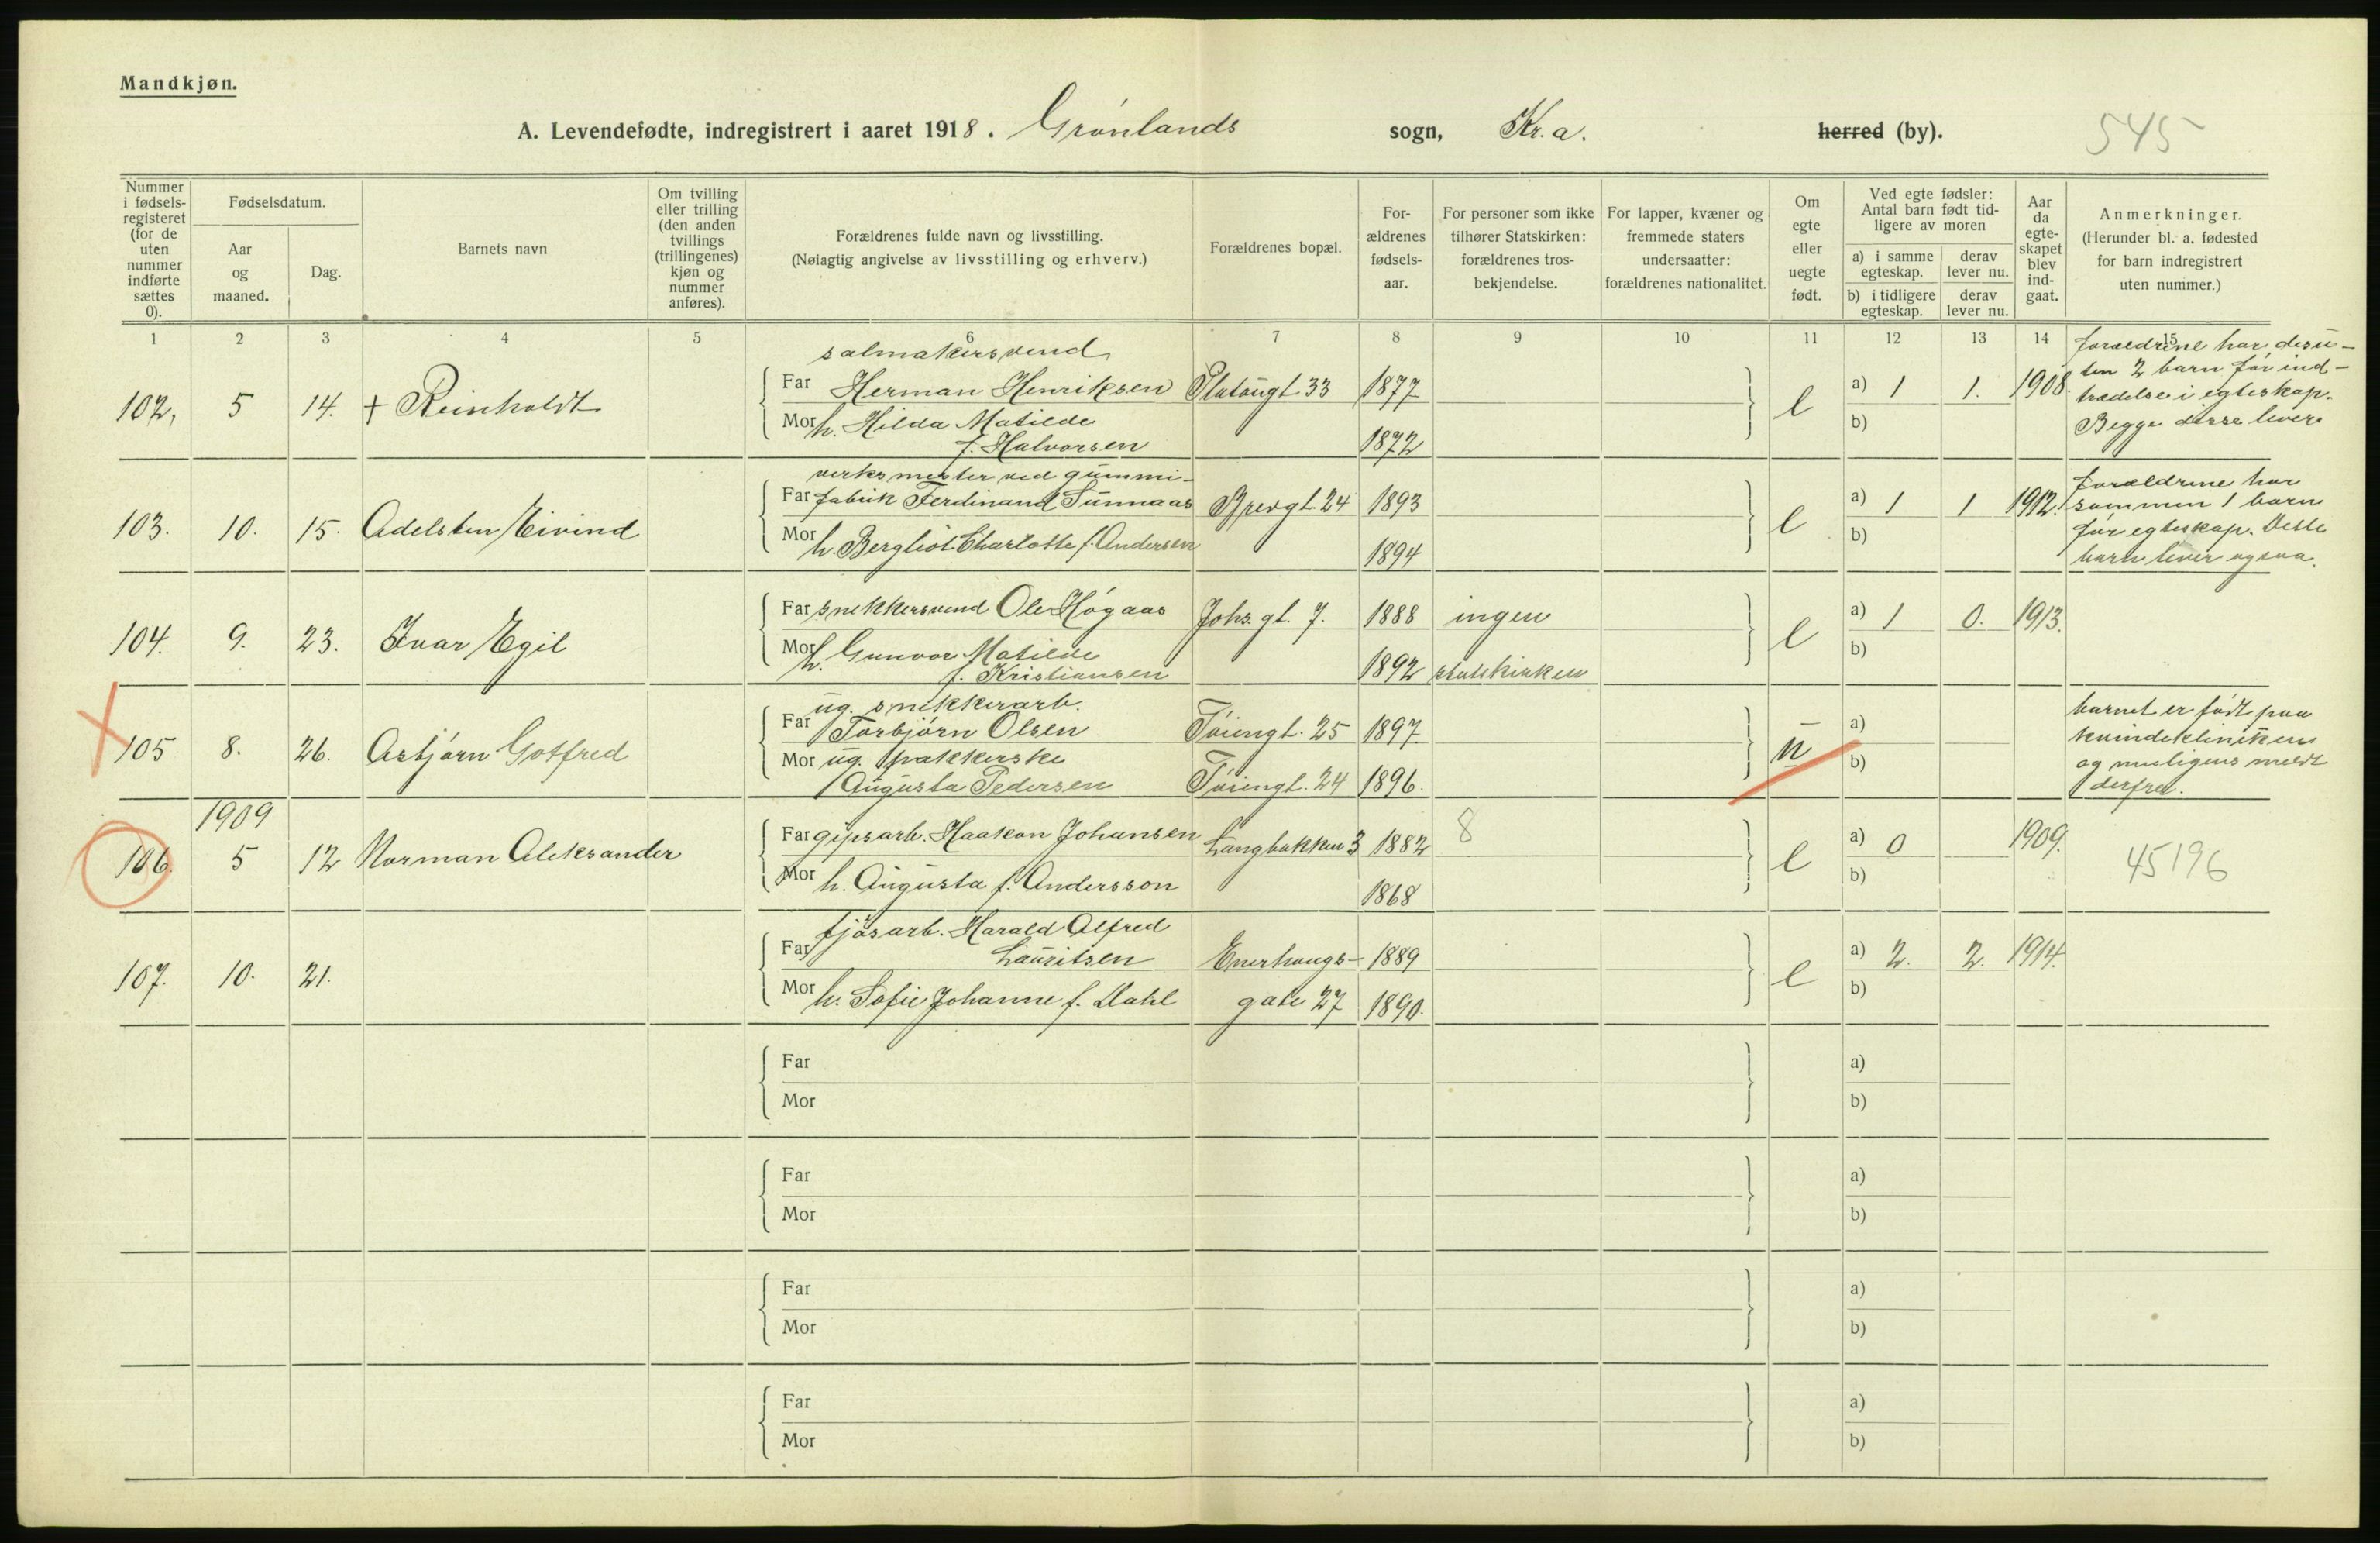 Mandkjøn.
A. Levendefødte, indregistrert i aaret 1918. Grønlands sogn, Kr.a. herred (by). 545
Nummer i fødselsregisteret (for de uten nummer indførte sættes 0).
Fødselsdatum.
Aar og maaned.
Dag.
Barnets navn
Om tvilling eller trilling (den anden tvillings (trillingenes) kjøn og nummer anføres).
Forældrenes fulde navn og livsstilling.
(Nøiagtig angivelse av livsstilling og erhverv.)
Forældrenes bopæl.
Forældrenes fødselsaar.
For personer som ikke tilhører Statskirken: forældrenes trosbekjendelse.
For lapper, kvæner og fremmede staters undersaatter: forældrenes nationalitet.
Om egte eller uegte født.
Ved egte fødsler: Antal barn født tidligere av moren
a) i samme egteskap.
derav lever nu.
b) i tidligere egteskap.
derav lever nu.
Aar da egteskapet blev indgaat.
Anmerkninger.
(Herunder bl. a. fødested for barn indregistrert uten nummer.)
1 2 3 4 5 6 7 8 9 10 11 12 13 14 15
salmakersvend
102, 5 14. + Reinholdt Far Herman Henriksen Platougt. 33 1877 e a) 1 1. 1908.
Mor h. Hilda Matilde
f. Halvorsen 1872 b)
forældrene har desu-
ten 2 barn før ind-
trædelse i egteskap.
Begge disse lever
verksmester ved gummi-
103. 10. 15. Adelsten Eivind Far fabrik Ferdinand Sunnaas Brevgt. 24 1893 e a) 1 1 1912.
Mor h. Bergliot Charlotte f. Andersen 1894 b)
forældrene har
sammen 1 barn
før egteskap. Dette
barn lever ogsaa.
104. 9. 23. Ivar Egil Far snekkersvend Ole Høgaas Johs. gt. 7. 1888 ingen e a) 1 0. 1913.
Mor h. Gunvor Matilde
f. Kristiansen 1892 statskirken b)
ug. snekkerarb.
105 8. 26. Asbjørn Gotfred Far Torbjørn Olsen Tøiengt. 25 1897. u a)
Mor ug. pakkerske
Augusta Pedersen Tøiengt. 24 1896. b)
barnet er født paa
kvindekliniken
og muligens meldt
derfra.
1909
106. 5 12 Norman Aleksander Far gipsarb. Haakon Johansen Langbakken 3 1882 8 e a) 0 1909. 45196
Mor h. Augusta f. Andersson 1868 b)
fjøsarb. Harald Alfred
107. 10. 21. Far Lauritsen Enerhaugs- 1889 e a) 2. 2. 1914.
Mor h. Sofie Johanne f. Dahl gate 27 1890. b)
Far a)
Mor b)
Far a)
Mor b)
Far a)
Mor b)
Far a)
Mor b)